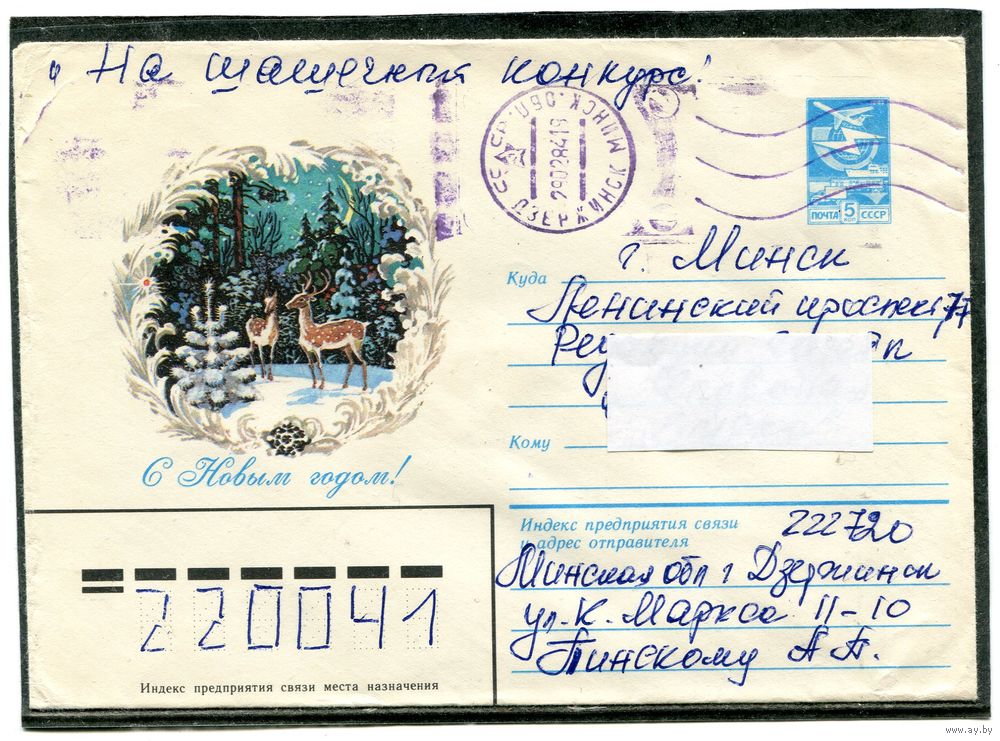 На шашечный конкурс!
СССР · ДЗЕРЖИНСК МИНСК. ОБЛ.
29028419
ПОЧТА 5 коп СССР
Куда
г. Минск
Ленинский проспект, 77
Кому
С Новым годом!
Индекс предприятия связи
и адрес отправителя
222720
Минская обл г Дзержинск
ул. К. Маркса 11-10
Пинскому А. А.
220041
Индекс предприятия связи места назначения
www.ay.by